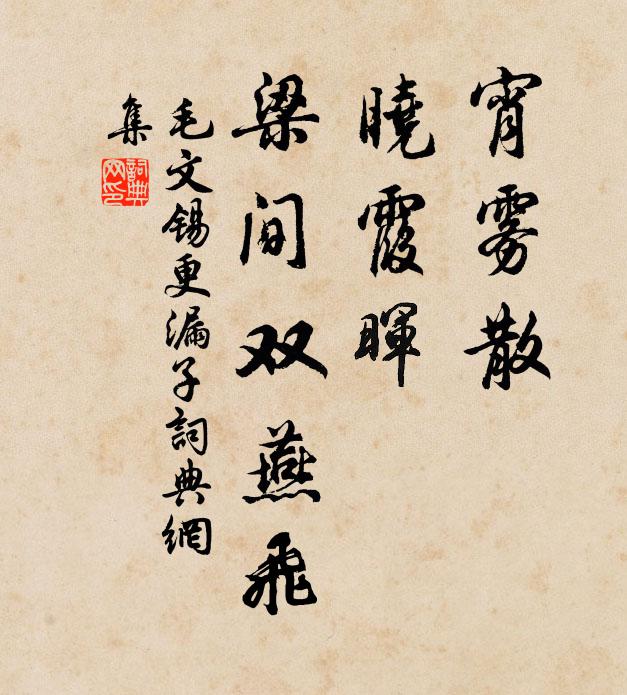 宵雾散
曉霞暉
梁间双燕飛
毛文锡更漏子詞典網
集
詞典
网印